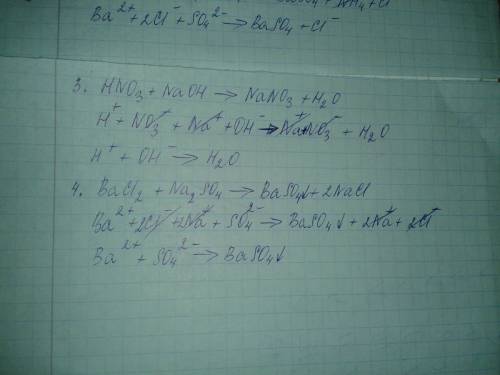 Ba²⁺ + 2Cl⁻ + SO₄²⁻ → BaSO₄ + Cl⁻
3. HNO₃ + NaOH → NaNO₃ + H₂O
H⁺ + NO₃⁻ + Na⁺ + OH⁻ → Na⁺NO₃⁻ + H₂O
H⁺ + OH⁻ → H₂O
4. BaCl₂ + Na₂SO₄ → BaSO₄↓ + 2NaCl
Ba²⁺ + 2Cl⁻ + 2Na⁺ + SO₄²⁻ → BaSO₄↓ + 2Na⁺ + 2Cl⁻
Ba²⁺ + SO₄²⁻ → BaSO₄↓